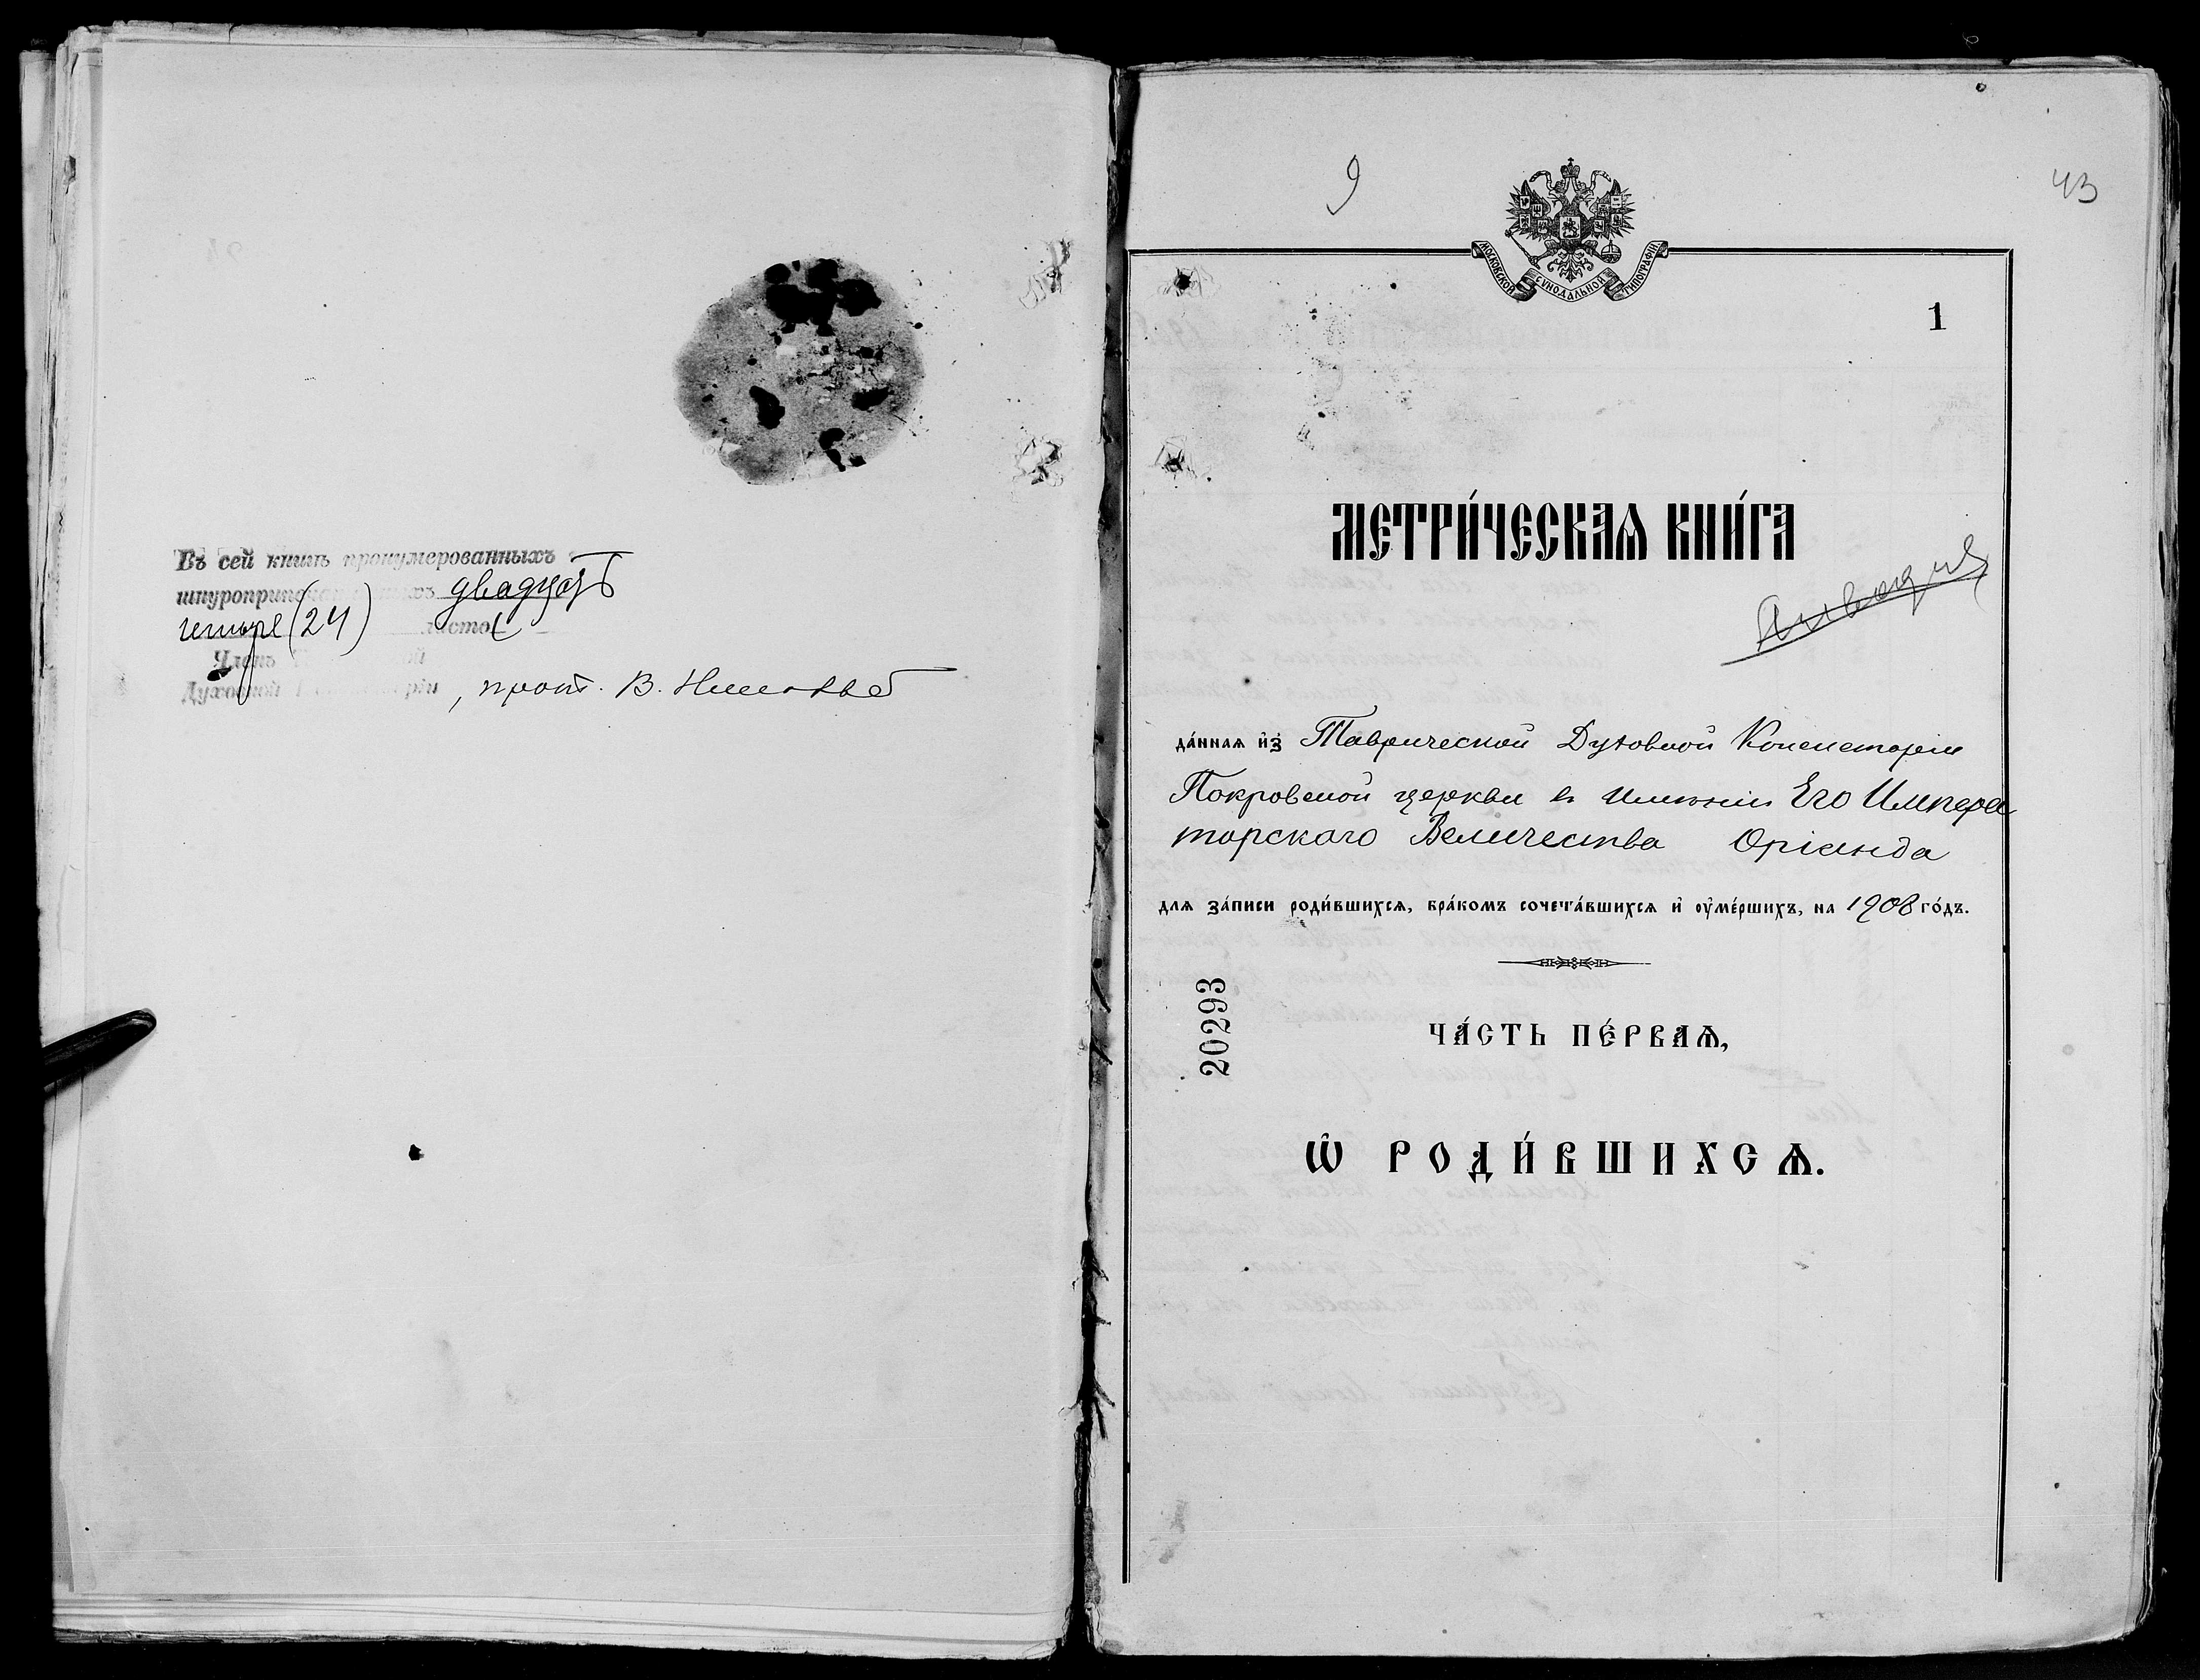 Въ сей книгѣ пронумерованныхъ
шнуроприпечатанныхъ двадцать
четыре (24) листов
Членъ
Духовной Консисторіи, прот. В.
9
43
МОСКОВСКОЙ СѴНОДАЛЬНОЙ ТИПОГРАФІИ
1
МЕТРИ́ЧЕСКАѦ КНИ́ГА
да́ннаѧ и҆з Таврической Духовной Консисторіи
Покровской церкви въ имѣніи Его Импера
торскаго Величества Оріанда
длѧ за́писи роди́вшихсѧ, бра́комъ сочета́вшихсѧ и҆ оу҆ме́ршихъ, на 1908 го́дъ.
20293
ЧА́СТЬ ПЕ́РВАѦ,
Ѡ҆ РОДИ́ВШИХСѦ.